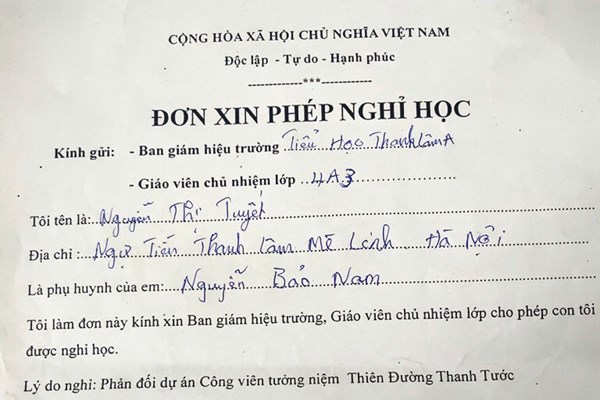 CỘNG HÒA XÃ HỘI CHỦ NGHĨA VIỆT NAM
Độc lập - Tự do - Hạnh phúc
-------------***------------
ĐƠN XIN PHÉP NGHỈ HỌC
Kính gửi: - Ban giám hiệu trường Tiểu Học Thanh Lâm A
- Giáo viên chủ nhiệm lớp 4A3
Tôi tên là: Nguyễn Thị Tuyết
Địa chỉ : Ngự Tiền Thanh Lâm Mê Linh Hà Nội
Là phụ huynh của em: Nguyễn Bảo Nam
Tôi làm đơn này kính xin Ban giám hiệu trường, Giáo viên chủ nhiệm lớp cho phép con tôi
được nghỉ học.
Lý do nghỉ: Phản đối dự án Công viên tưởng niệm Thiên Đường Thanh Tước